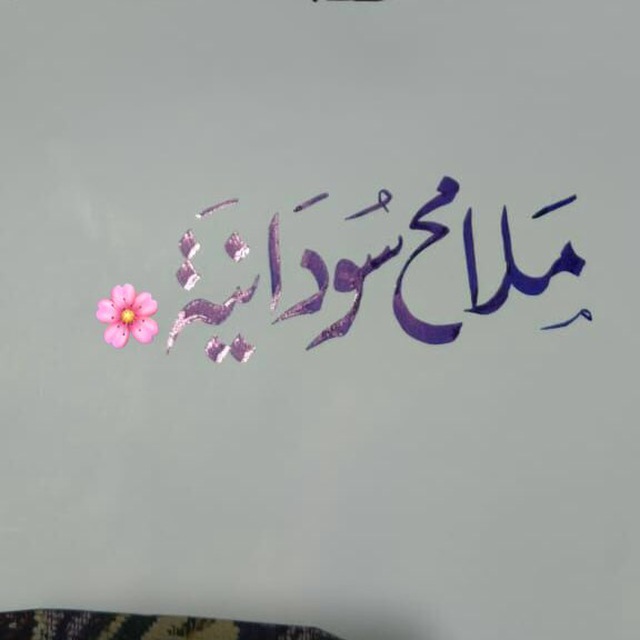 مَلامح سُودَانيَة